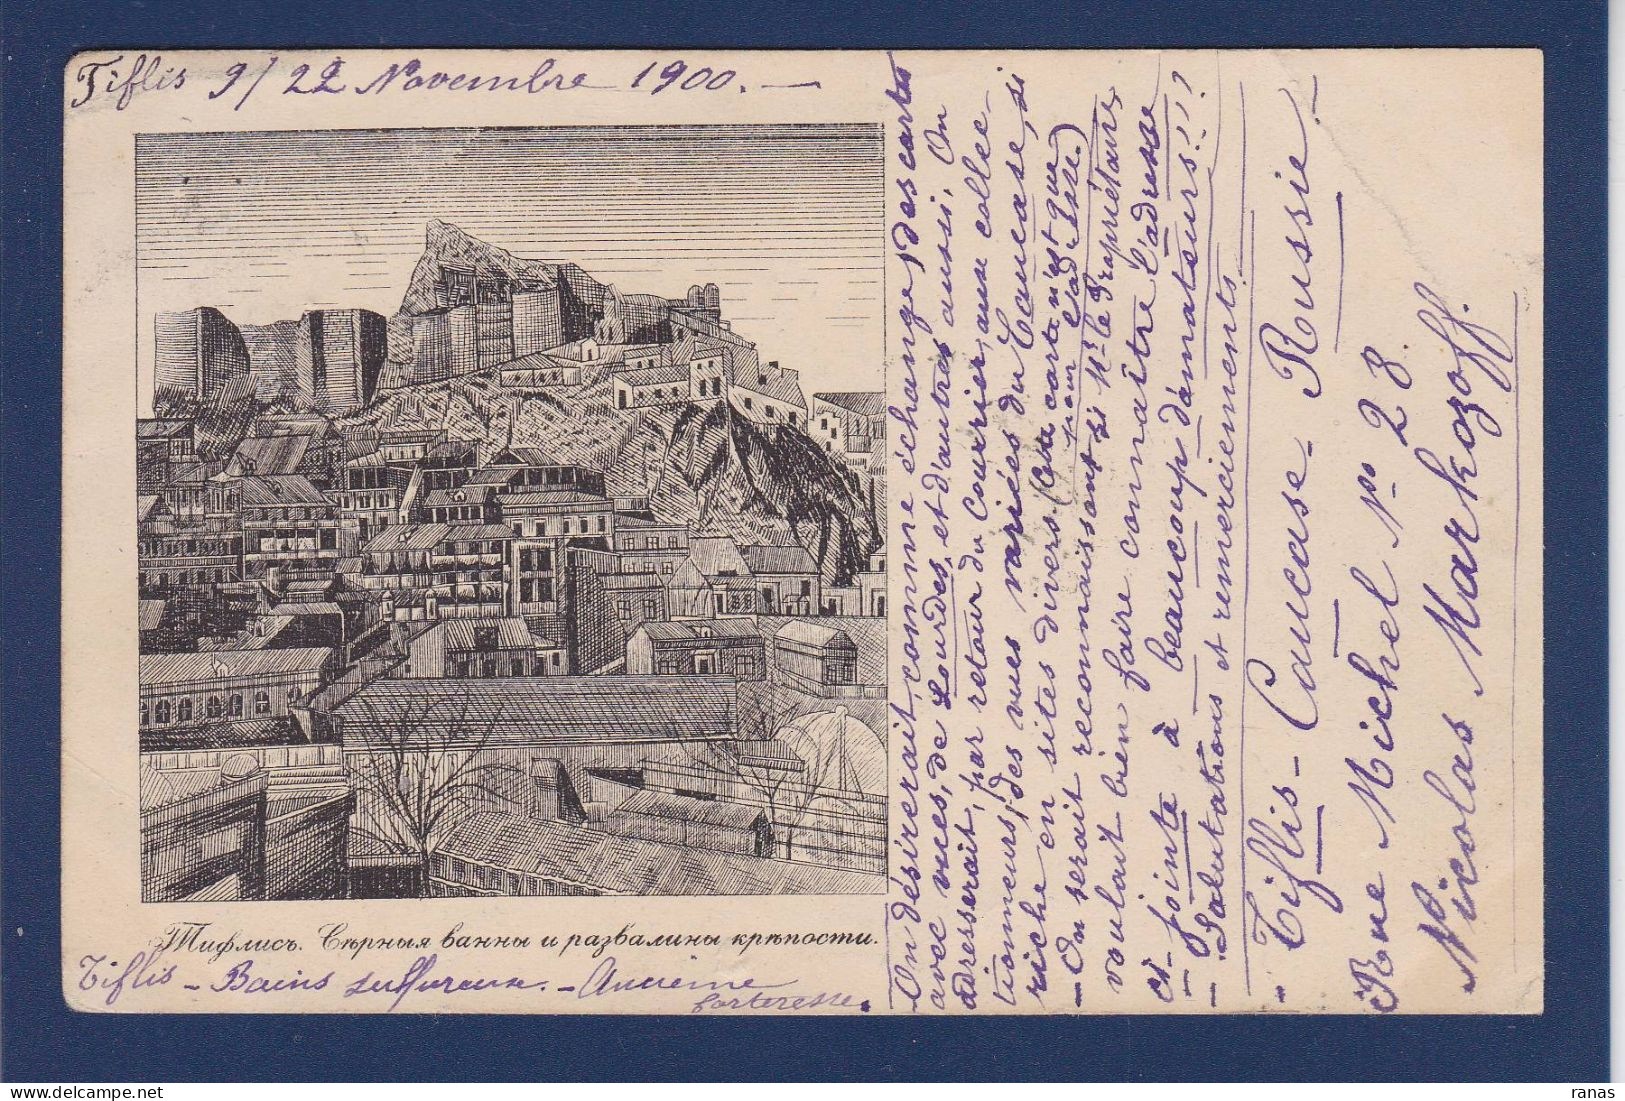 Tiflis 9/22 Novembre 1900. —
Тифлисъ. Сѣрныя ванны и развалины крѣпости.
Tiflis – Bains sulfureux. – Ancienne
forteresse.
On désirerait, comme échange, des cartes
avec vues, de Lourdes, et d'autres aussi. On
adresserait, par retour du Courrier, aux collec-
tionneurs, des vues variées du Caucase, si
riche en sites divers (Cette carte n'est que
pour l'adresse.)
— On serait reconnaissant si Mr le Propriétaire,
voulait bien faire connaître l'adresse
ci-jointe à beaucoup d'amateurs!!!!
— Salutations et remerciements.
Tiflis – Caucase – Russie.
Rue Michel No 28
Nicolas Markozoff.
ranas